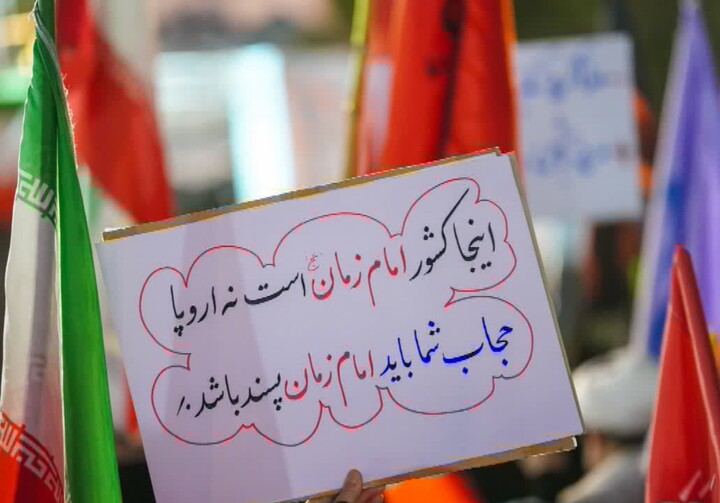 اینجا کشور امام زمان است نه اروپا
حجاب شما باید امام زمان پسند باشد